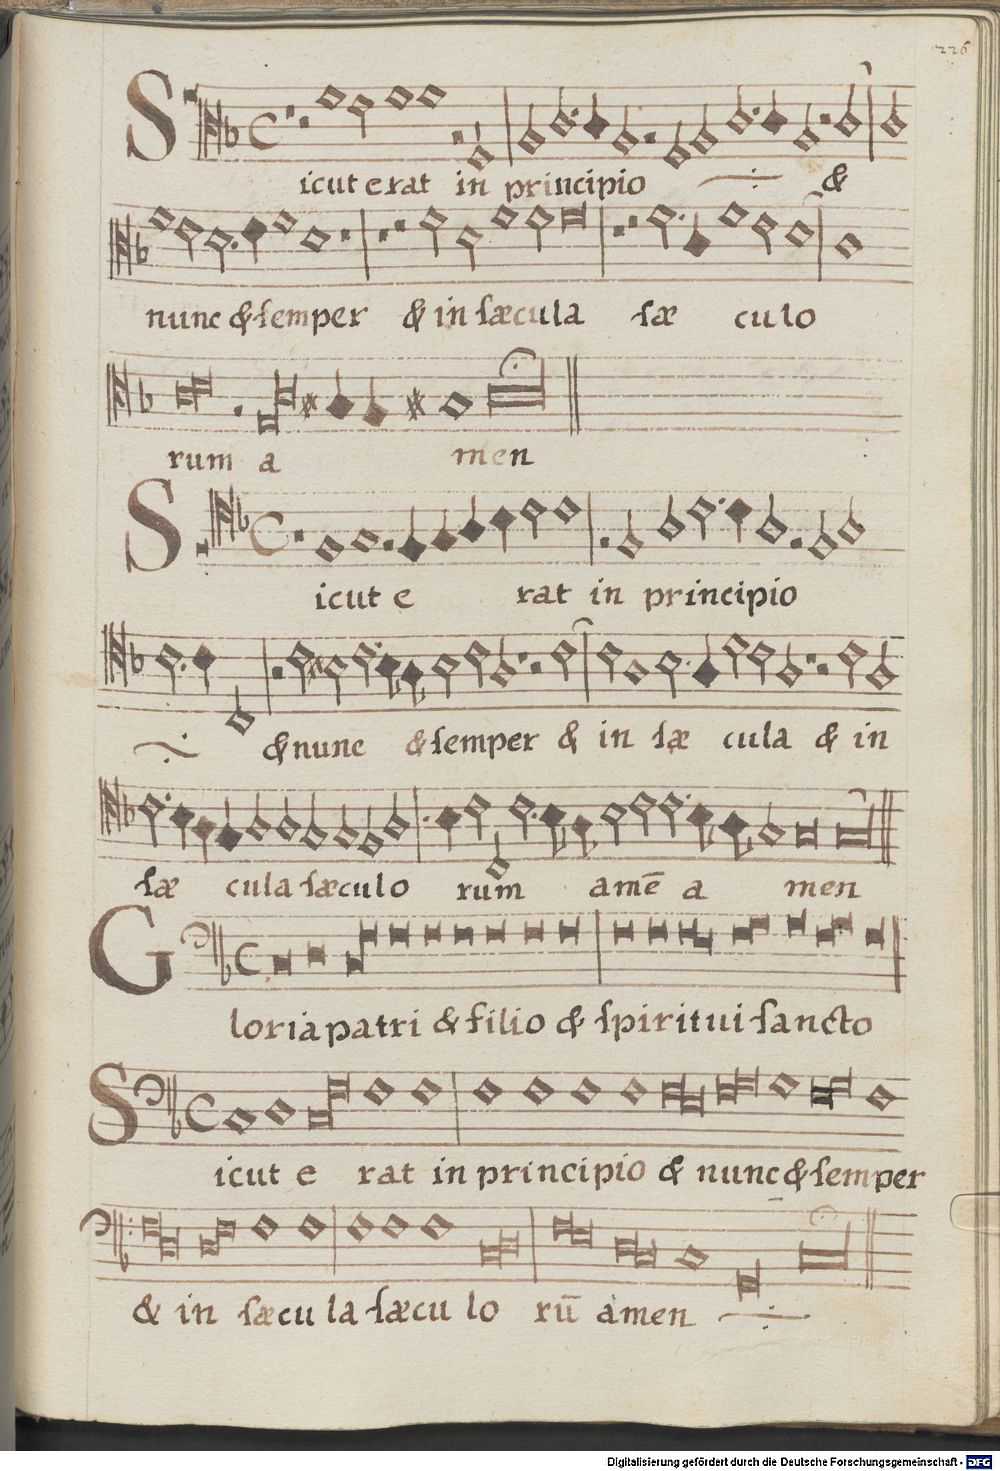 226
Sicut erat in principio &
nunc & ſemper & in ſæcula ſæ culo
rum a men
Sicut e rat in principio
& nunc & ſemper & in ſæ cula & in
ſæ cula ſæculo rum amē a men
Gloria patri & filio & ſpiritui ſancto
Sicut e rat in principio & nunc & ſemper
& in ſæcu la ſæcu lo rū amen
Digitalisierung gefördert durch die Deutsche Forschungsgemeinschaft - DFG